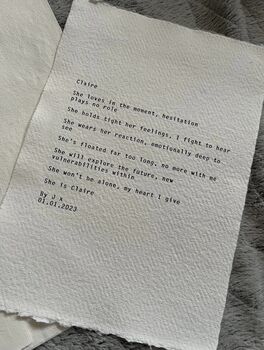 Claire
She loves in the moment, hesitation
plays no role
She holds tight her feelings, I fight to hear
She wears her reaction, emotionally deep to
see
She's floated far too long, no more with me
She will explore the future, new
vulnerabilities within
She won't be alone, my heart I give
She is Claire
By J x
01.01.2023